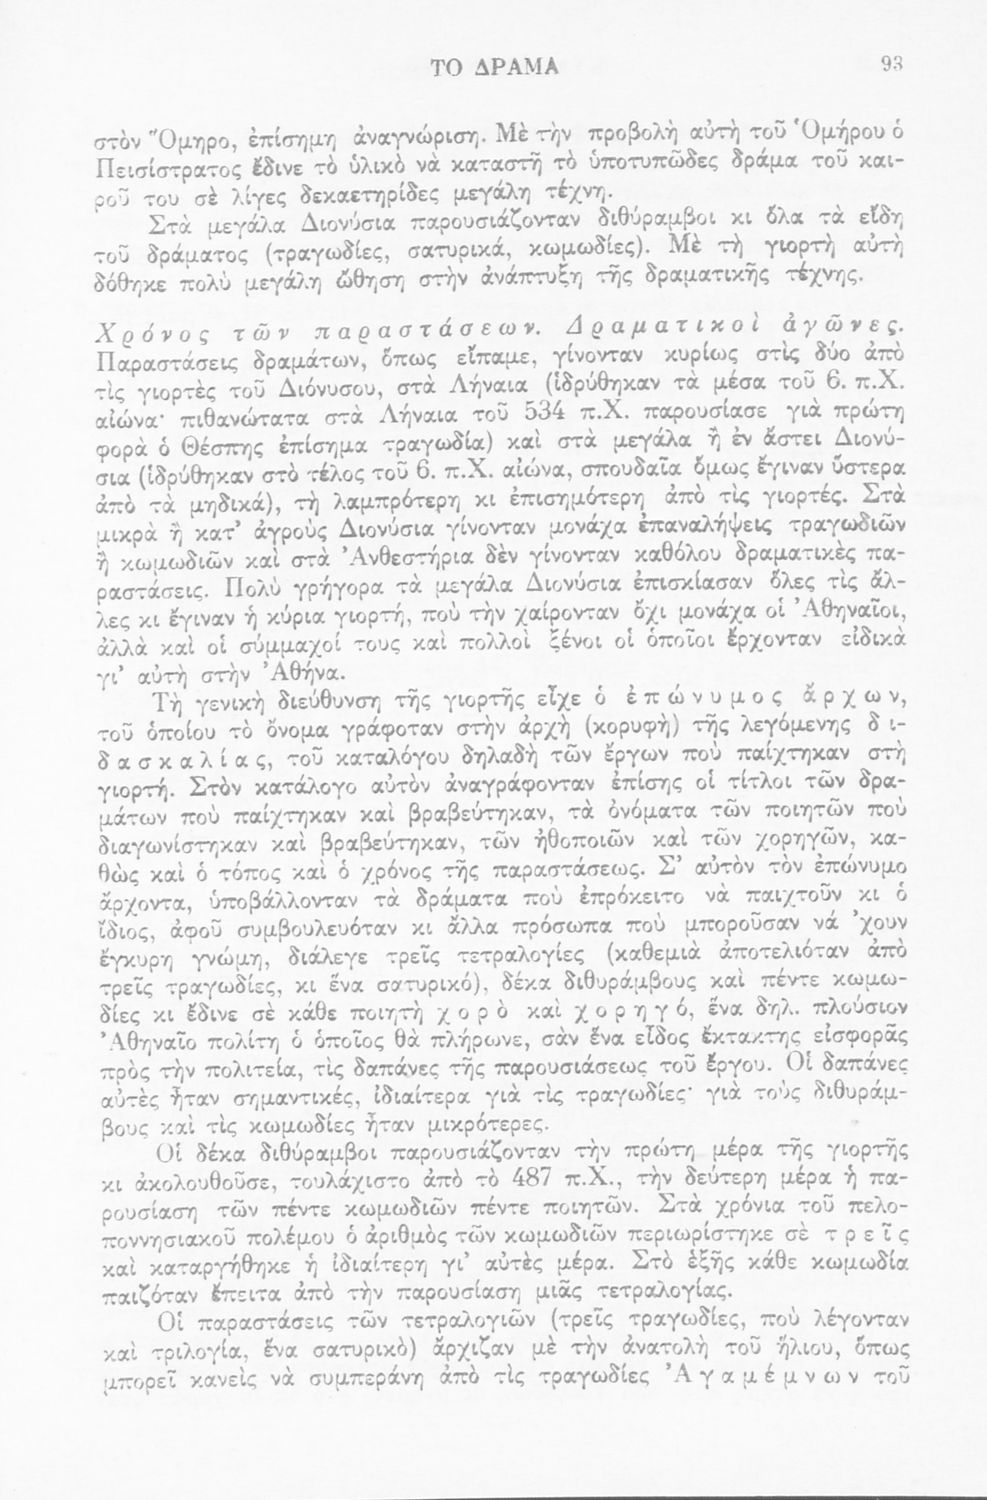 ΤΟ ΔΡΑΜΑ 93
στὸν Ὅμηρο, ἐπίσημη ἀναγνώριση. Μὲ τὴν προβολὴ αὐτὴ τοῦ Ὁμήρου ὁ
Πεισίστρατος ἔδινε τὸ ὑλικὸ νὰ καταστῆ τὸ ὑποτυπῶδες δράμα τοῦ και-
ροῦ του σὲ λίγες δεκαετηρίδες μεγάλη τέχνη.
Στὰ μεγάλα Διονύσια παρουσιάζονταν διθύραμβοι κι ὅλα τὰ εἴδη
τοῦ δράματος (τραγωδίες, σατυρικά, κωμωδίες). Μὲ τὴ γιορτὴ αὐτὴ
δόθηκε πολὺ μεγάλη ὤθηση στὴν ἀνάπτυξη τῆς δραματικῆς τέχνης.
Χρόνος τῶν παραστάσεων. Δραματικοὶ ἀγῶνες.
Παραστάσεις δραμάτων, ὅπως εἴπαμε, γίνονταν κυρίως στὶς δύο ἀπὸ
τὶς γιορτὲς τοῦ Διόνυσου, στὰ Λήναια (ἱδρύθηκαν τὰ μέσα τοῦ 6. π.Χ.
αἰώνα· πιθανώτατα στὰ Λήναια τοῦ 534 π.Χ. παρουσίασε γιὰ πρώτη
φορὰ ὁ Θέσπης ἐπίσημα τραγωδία) καὶ στὰ μεγάλα ἢ ἐν ἄστει Διονύ-
σια (ἱδρύθηκαν στὸ τέλος τοῦ 6. π.Χ. αἰώνα, σπουδαῖα ὅμως ἔγιναν ὕστερα
ἀπὸ τὰ μηδικά), τὴ λαμπρότερη κι ἐπισημότερη ἀπὸ τὶς γιορτές. Στὰ
μικρὰ ἢ κατ’ ἀγροὺς Διονύσια γίνονταν μονάχα ἐπαναλήψεις τραγωδιῶν
ἢ κωμωδιῶν καὶ στὰ Ἀνθεστήρια δὲν γίνονταν καθόλου δραματικὲς πα-
ραστάσεις. Πολὺ γρήγορα τὰ μεγάλα Διονύσια ἐπισκίασαν ὅλες τὶς ἄλ-
λες κι ἔγιναν ἡ κύρια γιορτή, ποὺ τὴν χαίρονταν ὄχι μονάχα οἱ Ἀθηναῖοι,
ἀλλὰ καὶ οἱ σύμμαχοί τους καὶ πολλοὶ ξένοι οἱ ὁποῖοι ἔρχονταν εἰδικὰ
γι’ αὐτὴ στὴν Ἀθήνα.
Τὴ γενικὴ διεύθυνση τῆς γιορτῆς εἶχε ὁ ἐπώνυμος ἄρχων,
τοῦ ὁποίου τὸ ὄνομα γράφοταν στὴν ἀρχὴ (κορυφὴ) τῆς λεγόμενης δι-
δασκαλίας, τοῦ καταλόγου δηλαδὴ τῶν ἔργων ποὺ παίχτηκαν στὴ
γιορτή. Στὸν κατάλογο αὐτὸν ἀναγράφονταν ἐπίσης οἱ τίτλοι τῶν δρα-
μάτων ποὺ παίχτηκαν καὶ βραβεύτηκαν, τὰ ὀνόματα τῶν ποιητῶν ποὺ
διαγωνίστηκαν καὶ βραβεύτηκαν, τῶν ἠθοποιῶν καὶ τῶν χορηγῶν, κα-
θὼς καὶ ὁ τόπος καὶ ὁ χρόνος τῆς παραστάσεως. Σ’ αὐτὸν τὸν ἐπώνυμο
ἄρχοντα, ὑποβάλλονταν τὰ δράματα ποὺ ἐπρόκειτο νὰ παιχτοῦν κι ὁ
ἴδιος, ἀφοῦ συμβουλευόταν κι ἄλλα πρόσωπα ποὺ μποροῦσαν νά ’χουν
ἔγκυρη γνώμη, διάλεγε τρεῖς τετραλογίες (καθεμιὰ ἀποτελιόταν ἀπὸ
τρεῖς τραγωδίες, κι ἕνα σατυρικό), δέκα διθυράμβους καὶ πέντε κωμω-
δίες κι ἔδινε σὲ κάθε ποιητὴ χορὸ καὶ χορηγό, ἕνα δηλ. πλούσιον
Ἀθηναῖο πολίτη ὁ ὁποῖος θὰ πλήρωνε, σὰν ἕνα εἶδος ἔκτακτης εἰσφορᾶς
πρὸς τὴν πολιτεία, τὶς δαπάνες τῆς παρουσιάσεως τοῦ ἔργου. Οἱ δαπάνες
αὐτὲς ἦταν σημαντικές, ἰδιαίτερα γιὰ τὶς τραγωδίες· γιὰ τοὺς διθυράμ-
βους καὶ τὶς κωμωδίες ἦταν μικρότερες.
Οἱ δέκα διθύραμβοι παρουσιάζονταν τὴν πρώτη μέρα τῆς γιορτῆς
κι ἀκολουθοῦσε, τουλάχιστο ἀπὸ τὸ 487 π.Χ., τὴν δεύτερη μέρα ἡ πα-
ρουσίαση τῶν πέντε κωμωδιῶν πέντε ποιητῶν. Στὰ χρόνια τοῦ πελο-
ποννησιακοῦ πολέμου ὁ ἀριθμὸς τῶν κωμωδιῶν περιωρίστηκε σὲ τρεῖς
καὶ καταργήθηκε ἡ ἰδιαίτερη γι’ αὐτὲς μέρα. Στὸ ἑξῆς κάθε κωμωδία
παιζόταν ἔπειτα ἀπὸ τὴν παρουσίαση μιᾶς τετραλογίας.
Οἱ παραστάσεις τῶν τετραλογιῶν (τρεῖς τραγωδίες, ποὺ λέγονταν
καὶ τριλογία, ἕνα σατυρικὸ) ἄρχιζαν μὲ τὴν ἀνατολὴ τοῦ ἥλιου, ὅπως
μπορεῖ κανεὶς νὰ συμπεράνη ἀπὸ τὶς τραγωδίες Ἀγαμέμνων τοῦ